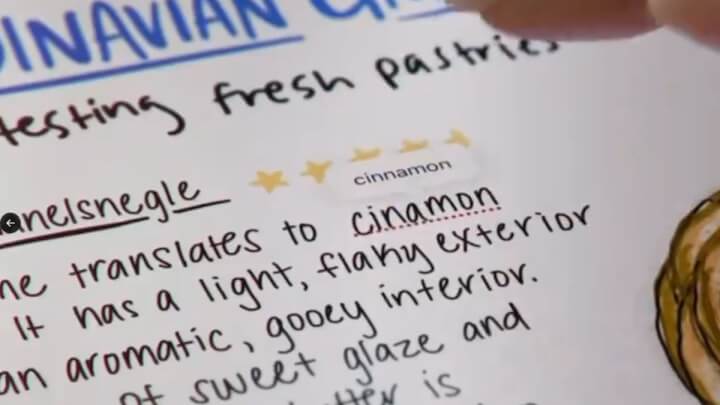 INAVIAN
testing fresh pastries
cinnamon
anelsnegle
translates to cjnamon
It has a light, flaky exterior
an aromatic, gooey interior.
of sweet glaze and
is